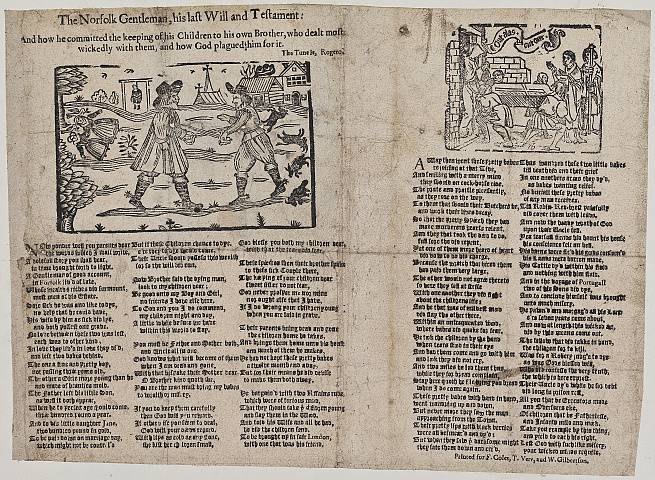 The Norfolk Gentleman, his last Will and Testament:
And how he committed the keeping of his Children to his own Brother, who dealt most
wickedly with them, and how God plagued them for it.
The Tune is, Rogero.
Now ponder well you parents dear
the words which I shall write,
A doleful story you shall hear,
in time brought forth to light.
A Gentleman of good account,
in Norfolk liv'd of late,
most men of his estate.
Sore sick he was and like to dye,
no help that he could have,
His wife by him as sick did lye,
and both possest one grave.
No love between these two was lost,
each was to other kind,
In love they liv'd in love they dy'd,
and left two babes behind.
The one a fine and pretty boy,
not passing three years old,
The other a Girl more young than he
and made of beauties mold.
The Father left his little Son,
as well it doth appear,
When he to perfect age should come,
three hundred pound a year.
And to his little daughter Jane,
two hundred pound in gold,
To be paid down on marriage day,
which might not be control'd
But if these Children chance to dye,
Their Uncle should possess the wealth
for so the will did run.
Now Brother said the dying man,
look to my children dear,
Be good unto my Boy and Girl,
no friends I have else here.
To God and you I do commend,
my children night and day,
A little while be sure we have
within this world to stay.
You must be Father and Mother both,
and Uncle all in one,
God knows what will become of them
when I am dead and gone.
With that bespake their Mother dear
O Brother kind quoth she,
You are the man must bring my babes
to wealth or misery.
If you do keep them carefully
then God will you reward,
If otherwise you seem to deal,
God will your deeds regard.
With lips as cold as any stone,
she kist her children small,
God bless you both my children dear,
These speeches then their brother spoke
to these sick Couple there,
The keeping of your children dear
Sweet sister do not fear.
God never prosper me nor mine
nor ought else that I have,
If I do wrong your children dear
when you are laid in grave.
Their parents being dead and gone
the children home he takes,
And brings them home unto his house
and much of them he makes.
He had not kept these pretty babes
a twelve month and a day,
But for their wealth he did devise
to make them both away.
He bargain'd with two Ruffians rude
which were of furious mood,
That they should take the children young
and slay them in the Wood.
And told his Wife and all he had,
he did the children send,
To be brought up in fair London,
with one that was his friend.
Away then went these pretty babes
rejoycing at that Tide,
And smiling with a merry mind
they should on cock-horse ride.
They prate and prattle pleasantly,
as they rode on the way,
To those that should their Butchers be,
and work their lives decay.
So that the pretty speech they had
made murderers hearts relent,
And they that took the deed to do
full sore they did repent.
Yet one of them more hard of heart
did vow to do his charge,
Because the wretch that hired them
had paid them very large.
The other would not agree thereto
so here they fell at strife
With one another they did fight
about the childrens life
And he that was of mildest mood
did slay the other there,
Within an unfrequented wood,
where babes did quake for fear.
He took the children by the hand
when tears stood in their eye
And bad them come and go with him
and look they did not cry.
And two miles he led them thus
while they for bread complain,
Stay here quoth he I'll bring you bread
when I do come again.
These pretty babes with hand in hand,
went wandring up and down,
But never more they saw the man
approaching from the Town.
Their pretty lips with black berries
were all besmear'd and dy'd
But when they saw the darksome night
they sate them down and cry'd.
Thus wandred these two little babes
till death did end their grief
In one anothers arms they dy'd,
as babes wanting relief.
No burial these pretty babes
of any man receives,
Till Robin-Red-brest painfully
did cover them with leaves.
And now the heavy wrath of God
upon their Uncle fell,
Yea fearful fiends did haunt his house
his conscience felt an hell.
His barns were fir'd his goods consum'd
his lands were barren made,
His Cattle dy'd within the field
and nothing with him staid.
And in the voyage of Portugall
two of his Sons did dye,
And to conclude himself was brought
unto much misery.
He pawn'd and mortgag'd all his Land
e're seven years came about,
And now at length this wicked act,
did by this means come out.
The fellow that did take in hand,
the children for to kill,
Was for a Robery judg'd to dye
as was Gods blessed will.
Who did confess the very truth,
the which is here exprest,
Their Uncle dy'd while he for debt
did long in prison rest.
All you that be Executors made
and Overseers eke,
Of children that be Fatherless,
and Infants mild and meek.
Take you example by this thing,
and yield to each his right,
Lest God with such like misery,
your wicked minds requite.
Printed for F. Coles, T. Vere, and W. Gilbertson.